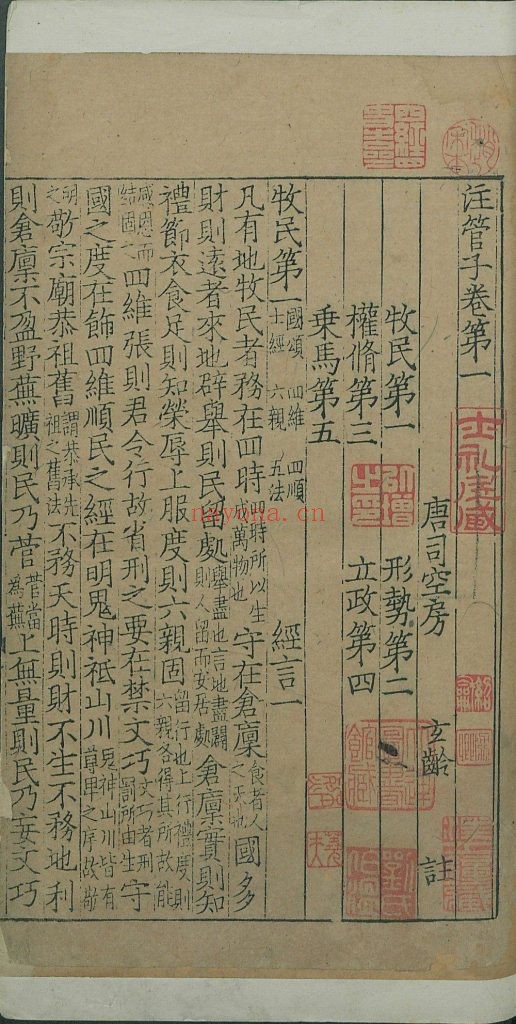 注管子卷第一
唐司空房 玄齡 註
牧民第一 形勢第二
權脩第三 立政第四
乗馬第五
牧民第一 國頌 四維 四順 士經 六親 五法 經言一
凡有地牧民者務在四時四時所以生成萬物也守在倉廩食者人之天也國多
財則遠者來地辟舉則民留處舉盡也言地盡闢則人留而安居處倉廩實則知
禮節衣食足則知榮辱上服度則六親固服行也上行禮度則六親各得其所故能
感恩而結固之四維張則君令行故省刑之要在禁文巧文巧者刑罰所由生守
國之度在飾四維順民之經在明鬼神祗山川鬼神山川皆有尊卑之序故敬
明之敬宗廟恭祖舊謂恭承先祖之舊法不務天時則財不生不務地利
則倉廩不盈野蕪曠則民乃菅菅當為蕪上無量則民乃妄文巧
士礼居藏
nayona.cn